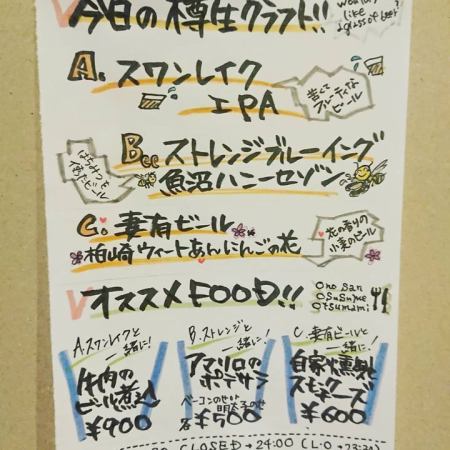 今日の樽生クラフト!!
Would you
like
a glass of beer?
A. スワンレイク
IPA
苦くて
フルーティな
ビール
B. ストレンジブルーイング
魚沼ハニーセゾン
はちみつを
使ったビール
C. 妻有ビール
柏崎ウィートあんにんごの花
花の香りの
小麦のビール
オススメFOOD!!
Ono san
Osusume
Otsumami
A.スワンレイクと
一緒に!
牛肉の
ビール煮込
¥900
B.ストレンジと
一緒に!
アマリロの
ポテサラ
ベーコンのせor
明太子のせ
各¥500
C.妻有ビールと
一緒に!
自家燻製
スモークチーズ
¥600
CLOSED→24:00 (L.O→23:30)